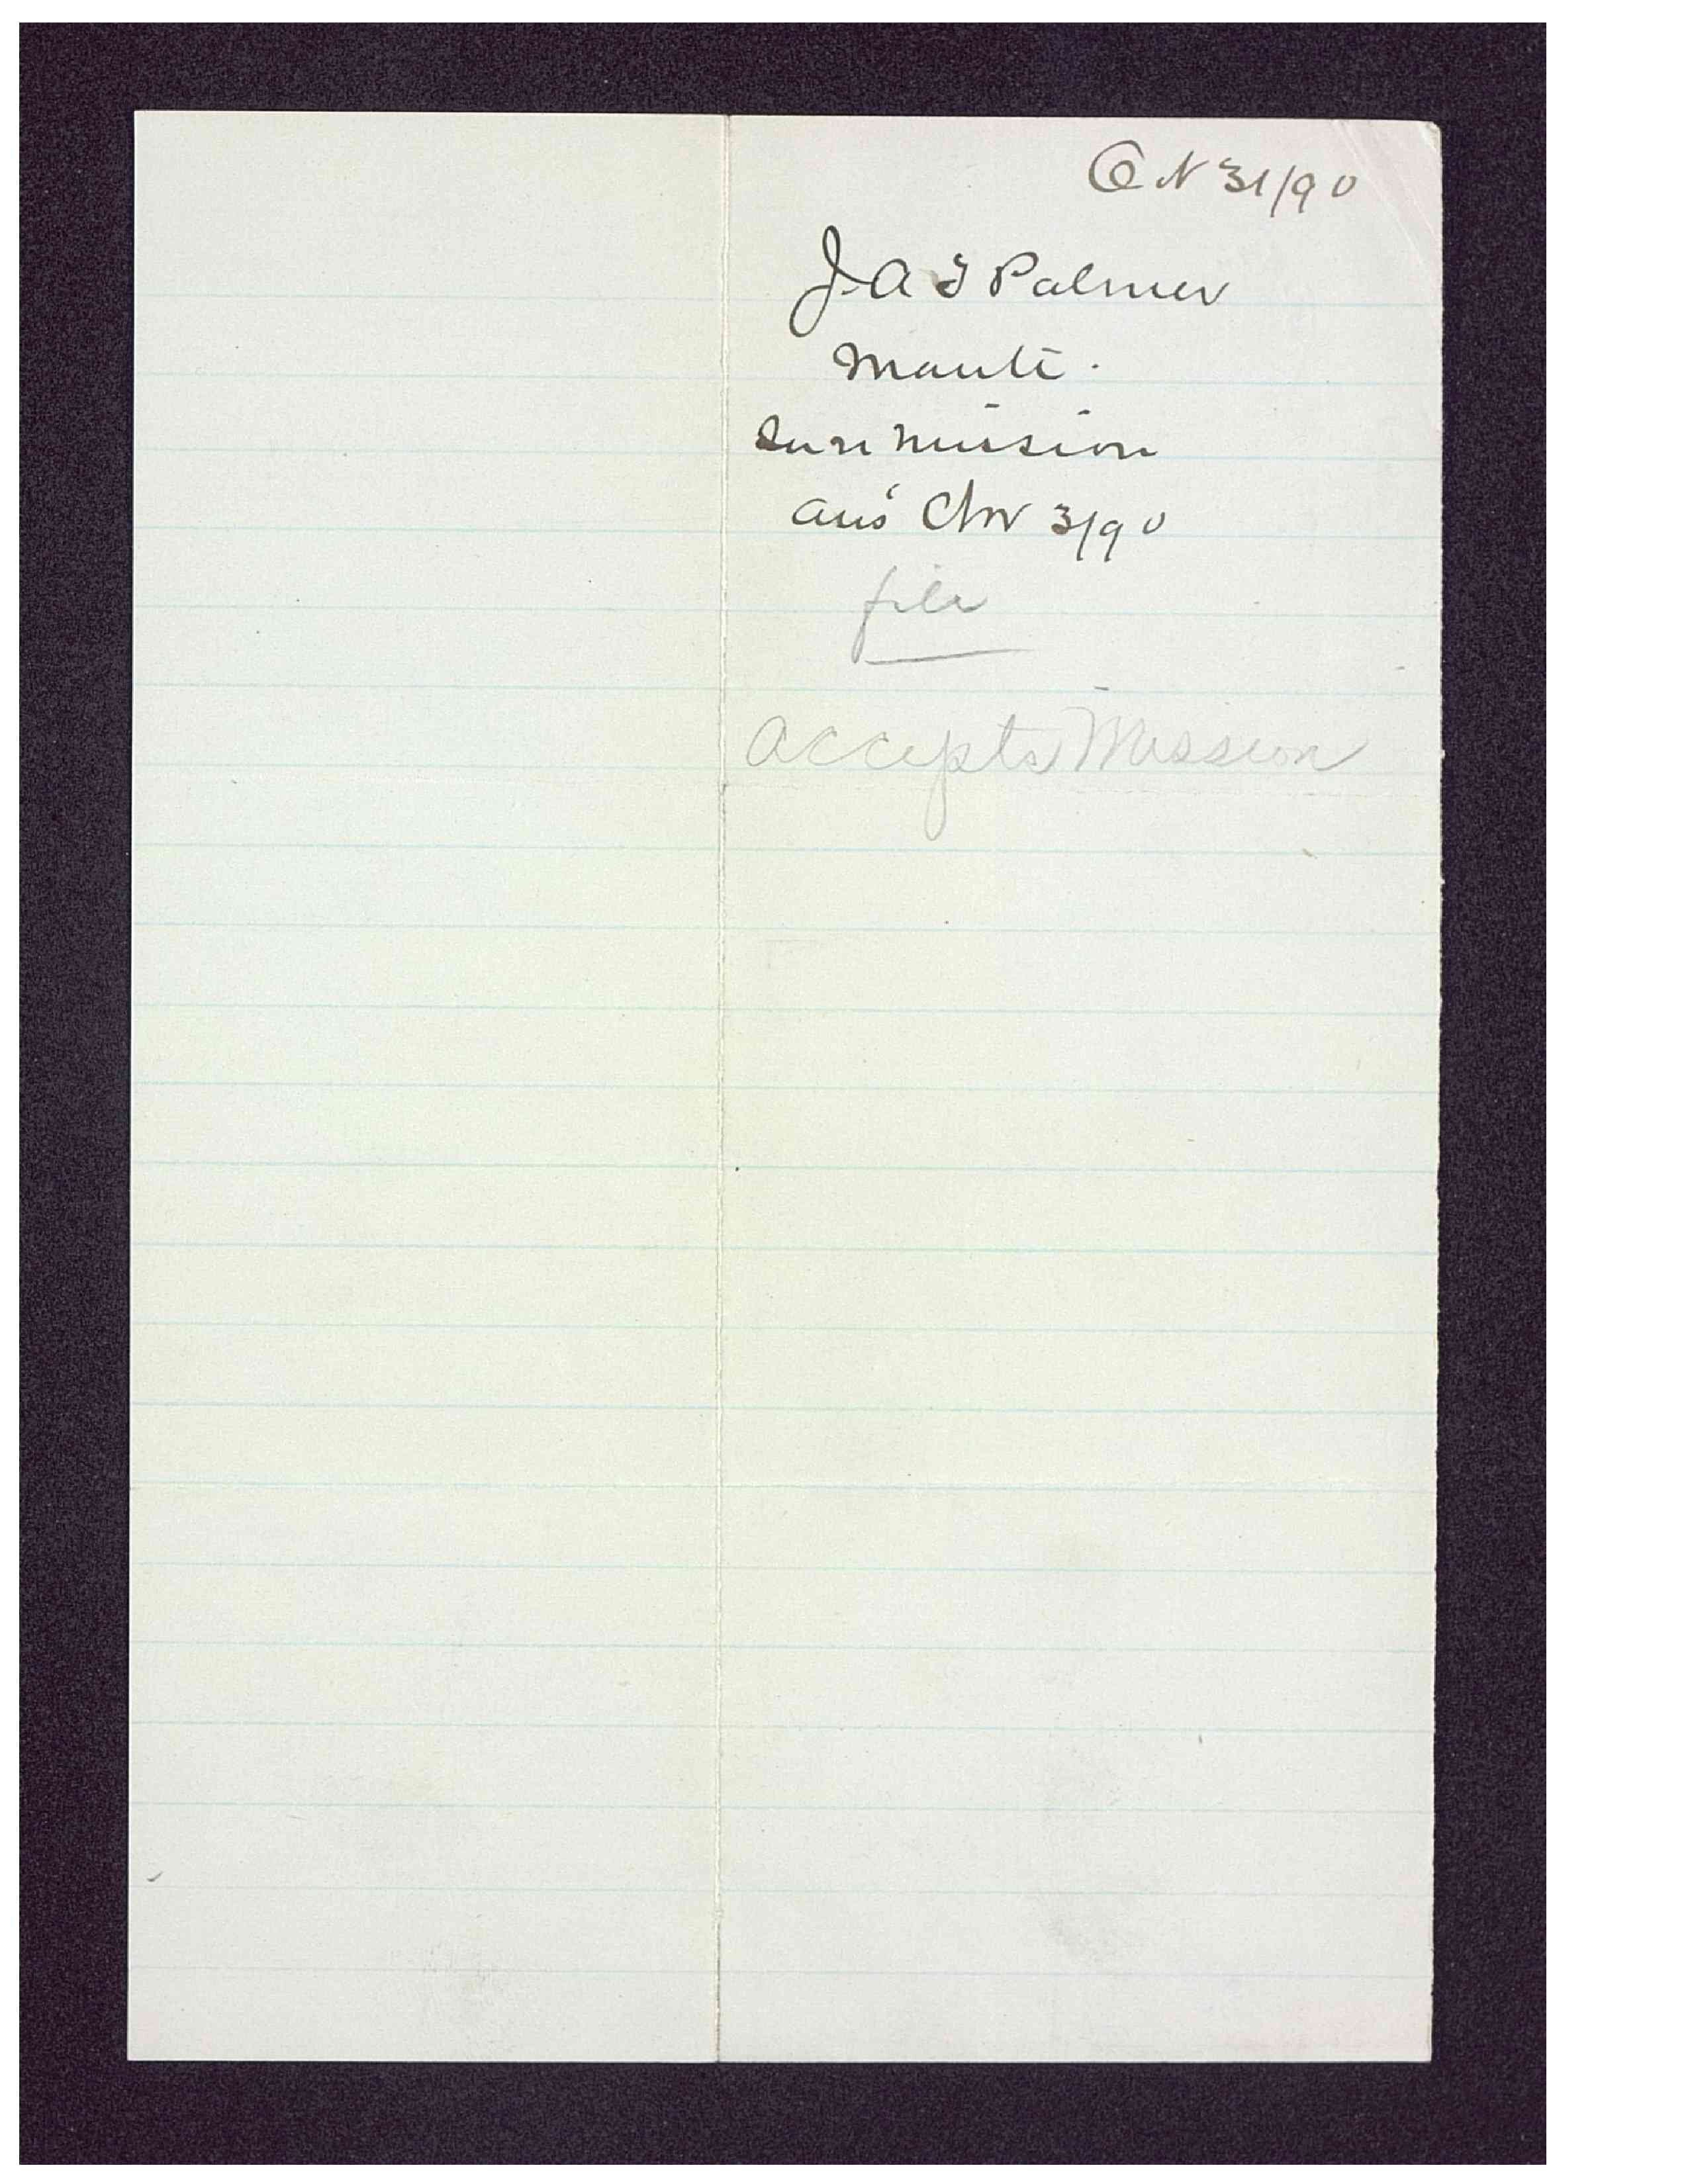 Oct 31/90
J. A. T Palmer
Manti.
In re Mission
ans Nov 3/90
file
Accepts Mission